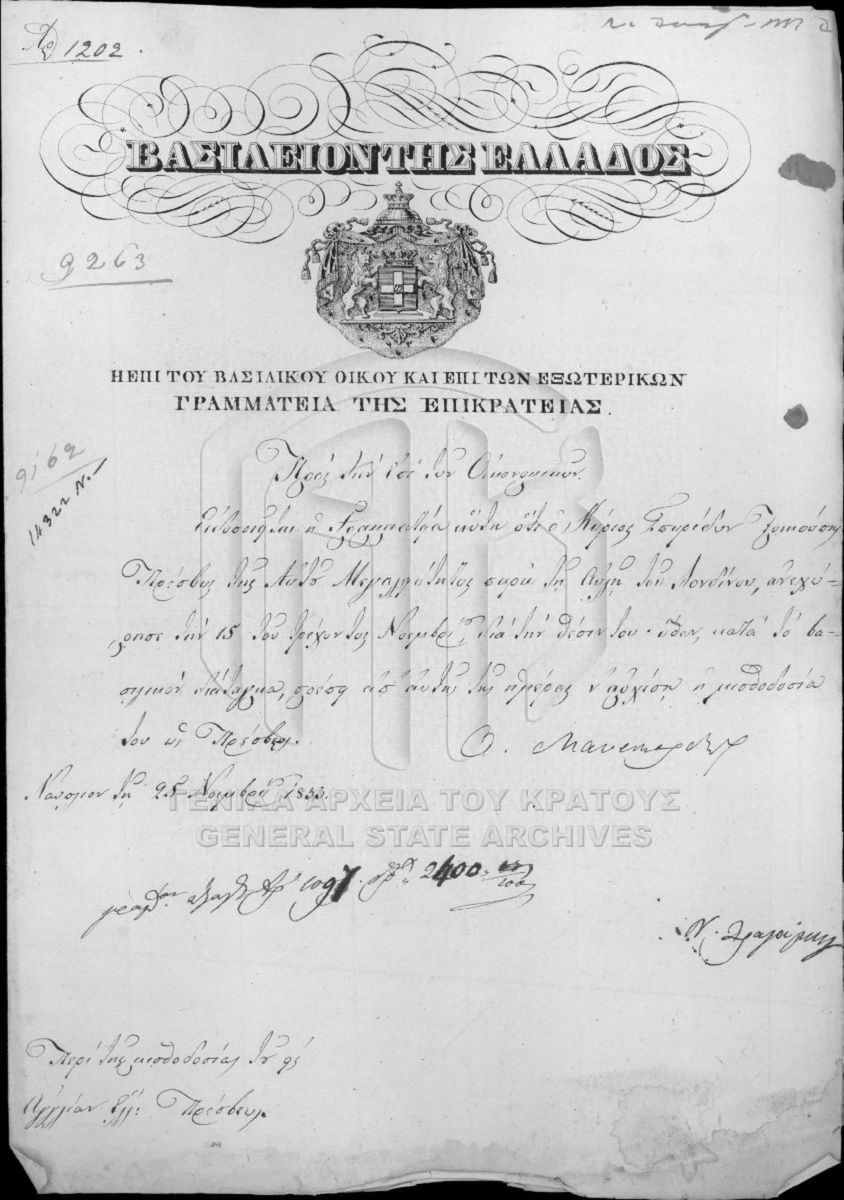 Αρ 1202.
ΒΑΣΙΛΕΙΟΝ ΤΗΣ ΕΛΛΑΔΟΣ
9263
Η ΕΠΙ ΤΟΥ ΒΑΣΙΛΙΚΟΥ ΟΙΚΟΥ ΚΑΙ ΕΠΙ ΤΩΝ ΕΞΩΤΕΡΙΚΩΝ
ΓΡΑΜΜΑΤΕΙΑ ΤΗΣ ΕΠΙΚΡΑΤΕΙΑΣ.
9162
14322 Ν.
Πρὸς τὴν ἐπὶ τῶν Οἰκονομικῶν.
Εἰδοποιεῖται ἡ Γραμματεία αὕτη ὅτι ὁ Κύριος Σπυρίδων Τρικούπης
Πρέσβυς της Αὐτοῦ Μεγαλειότητος παρὰ τῇ Αὐλῇ τοῦ Λονδίνου, ἀνεχώ-
ρησε τὴν 15 τοῦ τρέχοντος Νοεμβρίου, διὰ τὴν θέσιν του· ὅθεν, κατὰ τὸ βα-
σιλικὸν διάταγμα, πρέπει ἀπ' αὐτῆς της ἡμέρας ν' ἀρχίσῃ ἡ μισθοδοσία
του ὡς Πρέσβεως.
Ναύπλιον τῇ 25 Νοεμβρίου 1833.
ΓΕΝΙΚΑ ΑΡΧΕΙΑ ΤΟΥ ΚΡΑΤΟΥΣ
GENERAL STATE ARCHIVES
1097 2400
Περὶ της μισθοδοσίας τοῦ εἰς
Ἀγγλίαν Ἑλλ: Πρέσβεως.